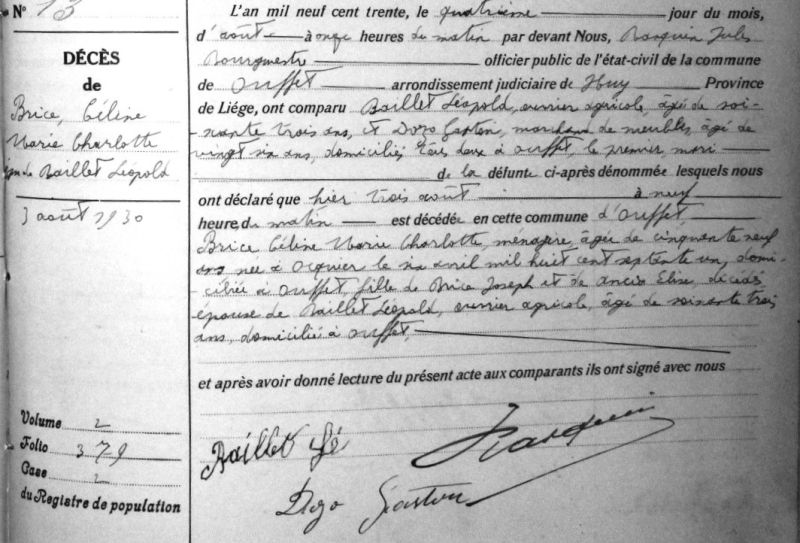 N° 13
DÉCÈS
de
Brice, Céline
Marie Charlotte
ép. de Baillet Léopold
3 août 1930
Volume 2
Folio 379
Case 2
du Registre de population
L'an mil neuf cent trente, le quatrième jour du mois,
d'août à onze heures du matin par devant Nous, Rasquin Jules
Bourgmestre officier public de l'état-civil de la commune
de Ouffet arrondissement judiciaire de Huy Province
de Liége, ont comparu Baillet Léopold, ouvrier agricole, âgé de soi-
xante trois ans, et Dozo Gaston, marchand de meubles, âgé de
vingt six ans, domiciliés tous deux à Ouffet, le premier, mari
de la défunte ci-après dénommée lesquels nous
ont déclaré que hier trois août à neuf
heure du matin est décédée en cette commune d'Ouffet,
Brice Céline Marie Charlotte, ménagère, âgée de cinquante neuf
ans née à Ocquier le six avril mil huit cent septante un, domi-
ciliée à Ouffet, fille de Brice Joseph et de Elise, décédés
épouse de Baillet Léopold, ouvrier agricole, âgé de soixante trois
ans, domicilié à Ouffet,
et après avoir donné lecture du présent acte aux comparants ils ont signé avec nous
Baillet Lé Rasquin
Dozo Gaston